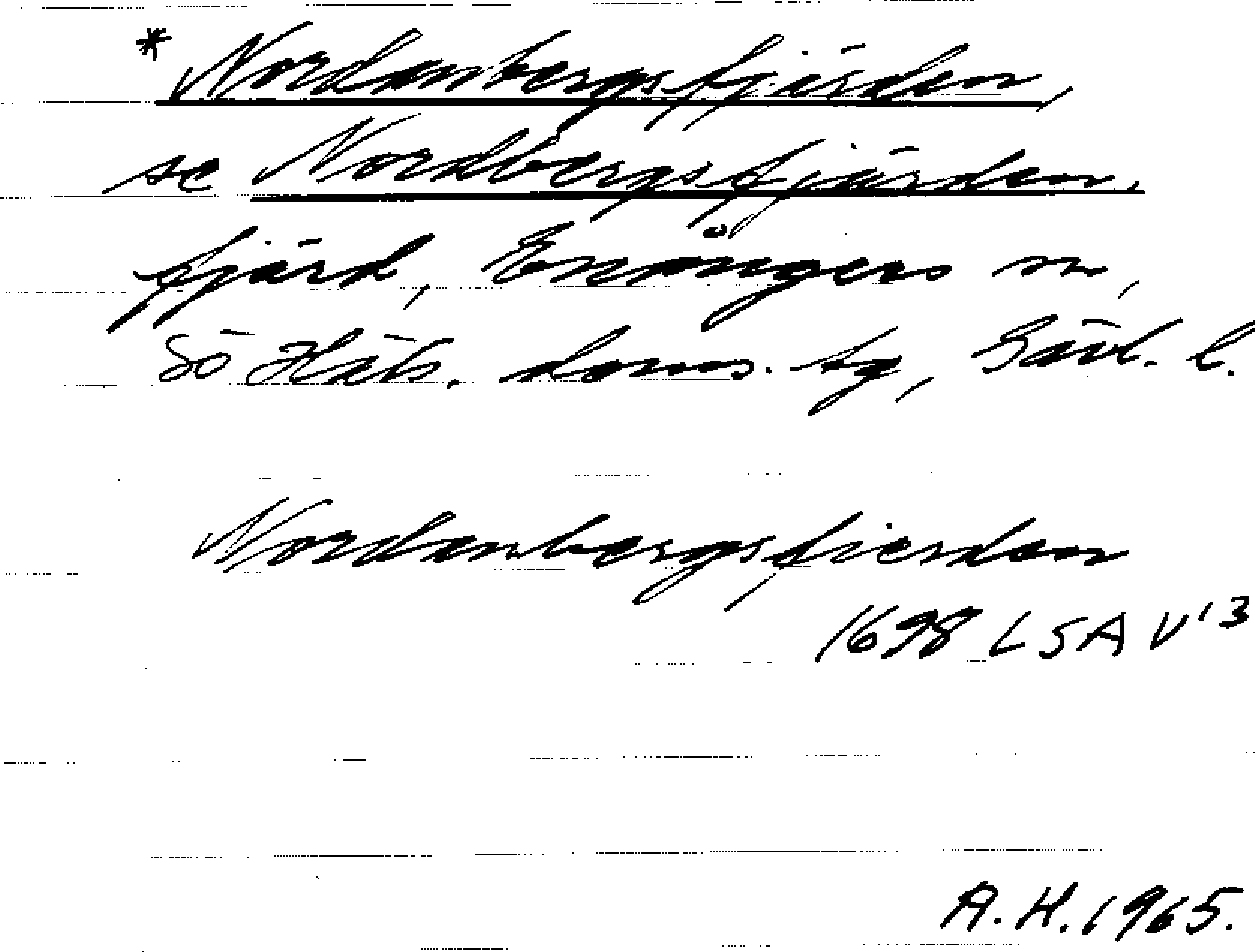 *Nordanbergsfjärden,
se Nordbergsfjärden,
fjärd, Enångers sn,
SÖ Häls. doms. tg, Gävl. l.
Nordanbergsfierden
1698 LSA V13
A.H. 1965.